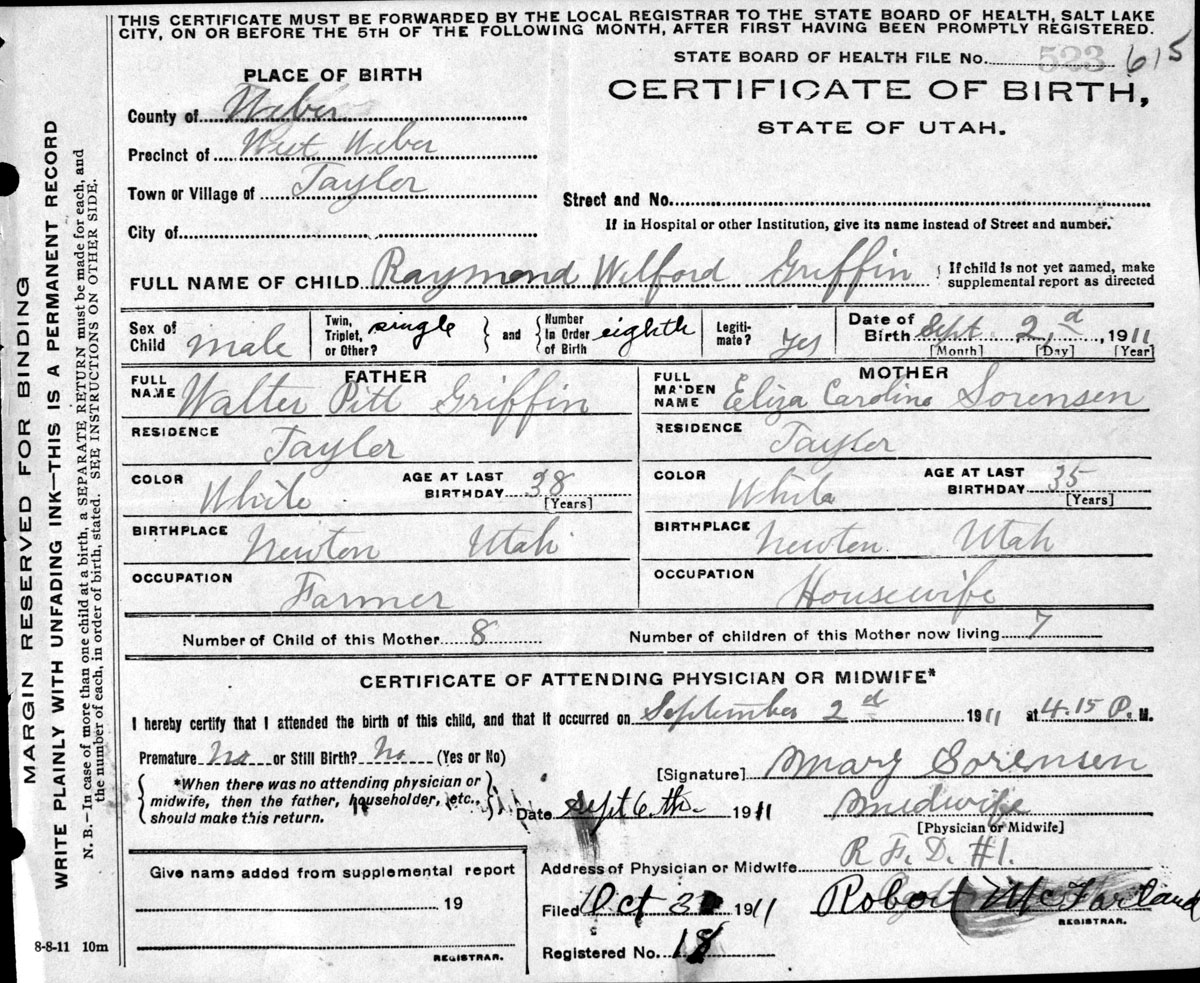 THIS CERTIFICATE MUST BE FORWARDED BY THE LOCAL REGISTRAR TO THE STATE BOARD OF HEALTH, SALT LAKE
CITY, ON OR BEFORE THE 5TH OF THE FOLLOWING MONTH, AFTER FIRST HAVING BEEN PROMPTLY REGISTERED.
STATE BOARD OF HEALTH FILE No. 523 615
PLACE OF BIRTH
CERTIFICATE OF BIRTH,
STATE OF UTAH.
County of Weber
Precinct of West Weber
Town or Village of Taylor
Street and No.
City of
If in Hospital or other Institution, give its name instead of Street and number.
FULL NAME OF CHILD Raymond Wilford Griffin { If child is not yet named, make supplemental report as directed
Sex of Child Male
Twin, Triplet, or Other? single } and { Number in Order of Birth eighth
Legitimate? Yes
Date of Birth Sept. 2,d, 1911
[Month] [Day] [Year]
FATHER
FULL NAME Walter Pitt Griffin
RESIDENCE Taylor
COLOR White
AGE AT LAST BIRTHDAY 38
[Years]
BIRTHPLACE Newton Utah
OCCUPATION Farmer
MOTHER
FULL MAIDEN NAME Eliza Caroline Sorensen
RESIDENCE Taylor
COLOR White
AGE AT LAST BIRTHDAY 35
[Years]
BIRTHPLACE Newton Utah
OCCUPATION Housewife
Number of Child of this Mother 8 Number of children of this Mother now living 7
CERTIFICATE OF ATTENDING PHYSICIAN OR MIDWIFE*
I hereby certify that I attended the birth of this child, and that it occurred on September 2d 1911 at 4.15 P. M.
Premature No or Still Birth? No (Yes or No)
{ *When there was no attending physician or
midwife, then the father, householder, etc.,
should make this return. }
[Signature] Mary Sorensen
Date Sept 6th. 1911 Midwife
[Physician or Midwife]
Address of Physician or Midwife R. F. D. #1.
Give name added from supplemental report
19
REGISTRAR.
Filed Oct 3 1911 Robert McFarland
REGISTRAR.
Registered No. 18
8-8-11 10m
MARGIN RESERVED FOR BINDING
WRITE PLAINLY WITH UNFADING INK—THIS IS A PERMANENT RECORD
N. B.—In case of more than one child at a birth, a SEPARATE RETURN must be made for each, and
the number of each, in order of birth, stated. SEE INSTRUCTIONS ON OTHER SIDE.